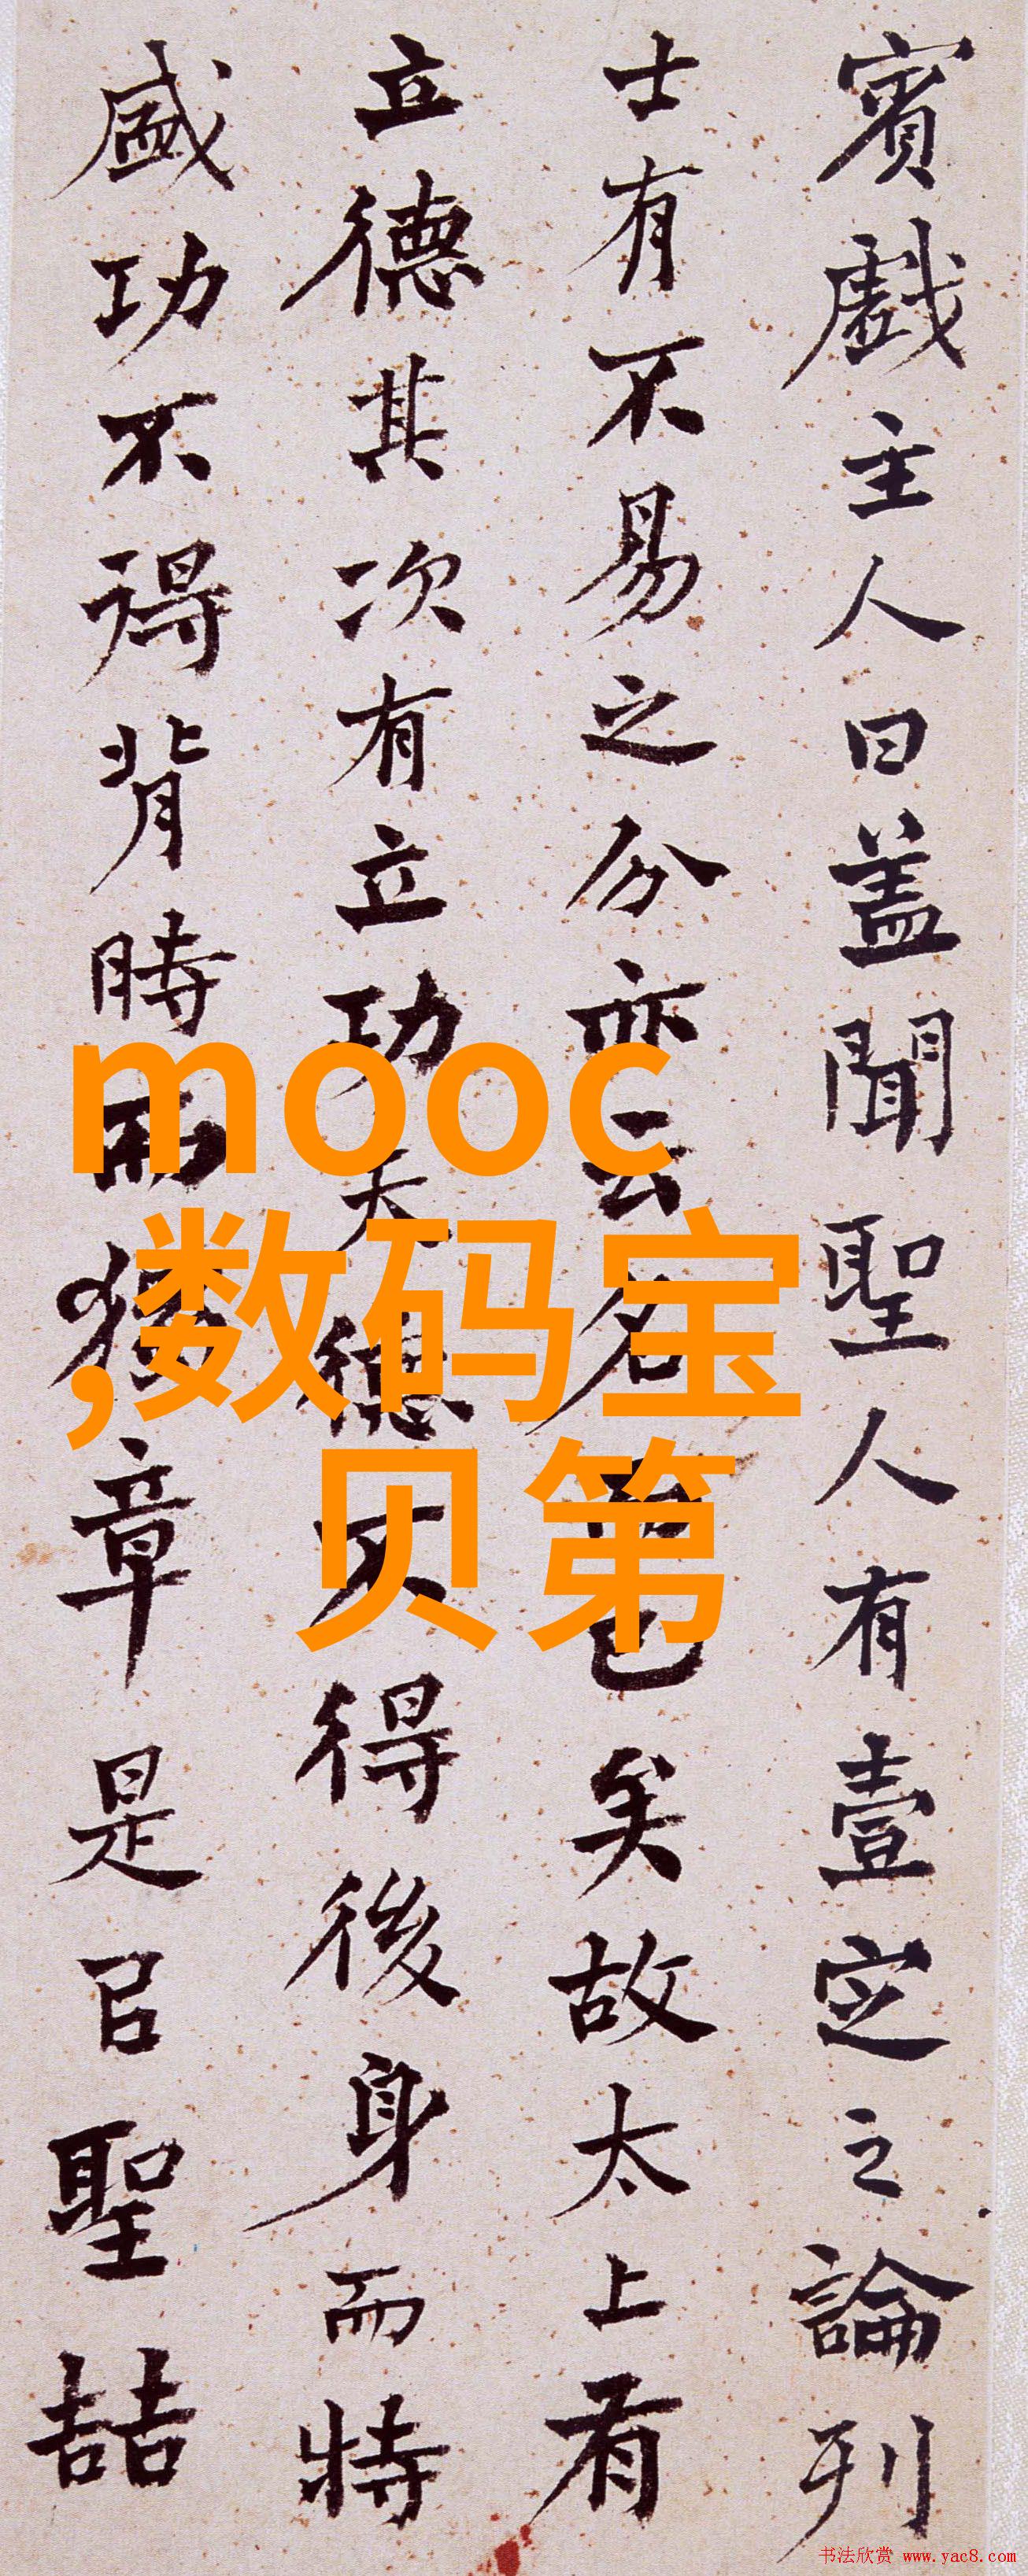 賓戲主人曰盖聞聖人有壹定之論列
士有不易之分亦云名而已矣故太上有
立德其次有立功夫德不得後身而特
盛功不得背時而獨章是㠯聖喆
mooc
,数码宝
贝第
书法欣赏 www.yac8.com